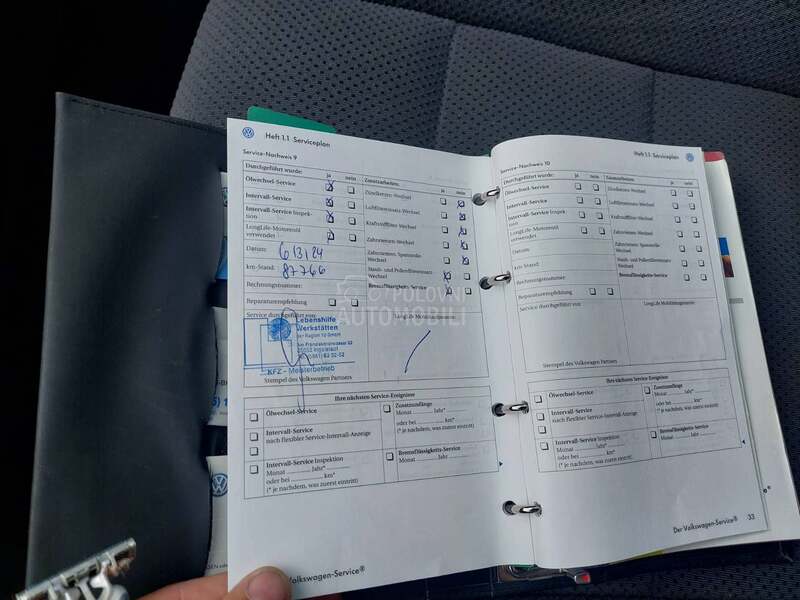 Heft 1.1 Serviceplan
Service-Nachweis 9
Durchgeführt wurde: ja nein
Ölwechsel-Service
Intervall-Service
Intervall-Service Inspek-
tion
LongLife-Motorenöl
verwendet
Datum: 6/3/24
km-Stand: 87766
Rechnungsnummer:
Reparaturempfehlung
Service durchgeführt von:
Lebenshilfe
Werkstätten
der Region 10 GmbH
KFZ - Meisterbetrieb
Stempel des Volkswagen Partners
Zusatzarbeiten: ja nein
Zündkerzen-Wechsel
Luftfiltereinsatz-Wechsel
Kraftstofffilter-Wechsel
Zahnriemen-Wechsel
Zahnriemen, Spannrolle-
Wechsel
Staub- und Pollenfiltereinsatz-
Wechsel
Bremsflüssigkeits-Service
LongLife Mobilitätsgarantie
Ihre nächsten Service-Ereignisse
Ölwechsel-Service
Intervall-Service
nach flexibler Service-Intervall-Anzeige
Intervall-Service Inspektion
Monat ........ Jahr*
oder bei ........ km*
(* je nachdem, was zuerst eintritt)
Zusatzumfänge
Monat ........ Jahr ........*
oder bei ........ km*
(* je nachdem, was zuerst eintritt)
Bremsflüssigkeits-Service
Monat ........ Jahr ........
Volkswagen-Service®
Heft 1.1 Serviceplan
Service-Nachweis 10
Durchgeführt wurde: ja nein
Ölwechsel-Service
Intervall-Service
Intervall-Service Inspek-
tion
LongLife-Motorenöl
verwendet
Datum:
km-Stand:
Rechnungsnummer:
Reparaturempfehlung
Service durchgeführt von:
Stempel des Volkswagen Partners
Zusatzarbeiten: ja nein
Zündkerzen-Wechsel
Luftfiltereinsatz-Wechsel
Kraftstofffilter-Wechsel
Zahnriemen-Wechsel
Zahnriemen, Spannrolle-
Wechsel
Staub- und Pollenfiltereinsatz-
Wechsel
Bremsflüssigkeits-Service
LongLife Mobilitätsgarantie
Ihre nächsten Service-Ereignisse
Ölwechsel-Service
Intervall-Service
nach flexibler Service-Intervall-Anzeige
Intervall-Service Inspektion
Monat ........ Jahr ........*
oder bei ........ km*
(* je nachdem, was zuerst eintritt)
Zusatzumfänge
Monat ........ Jahr ........*
oder bei ........ km*
(* je nachdem, was zuerst eintritt)
Bremsflüssigkeits-Service
Monat ........ Jahr ........
Der Volkswagen-Service® 33
POLOVNI
AUTOMOBILI